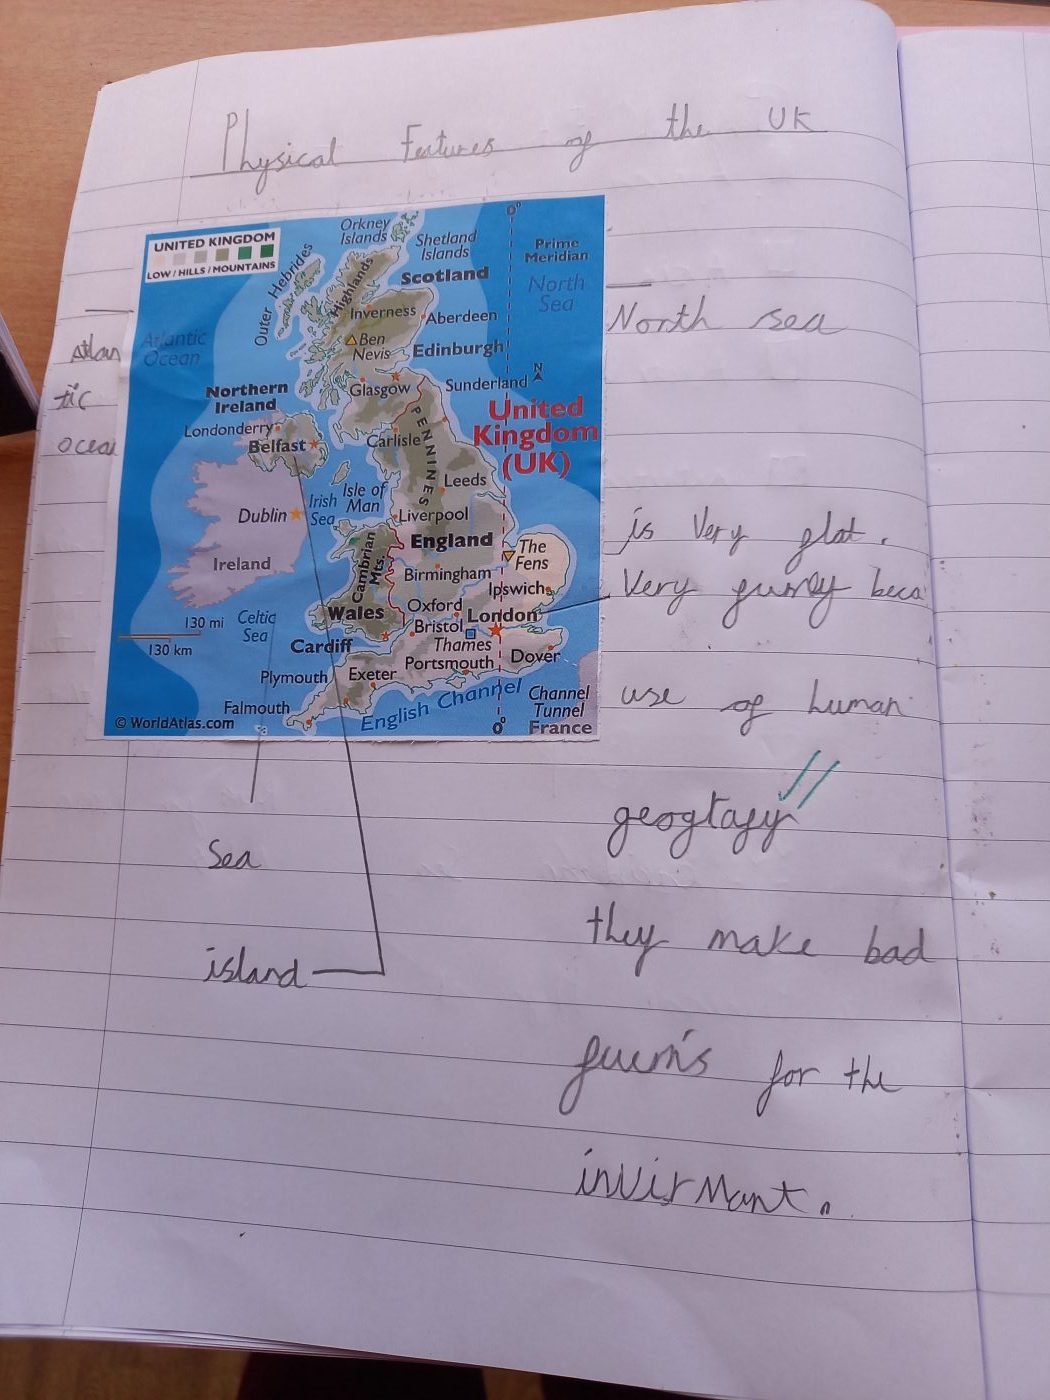 Physical Features of the UK
UNITED KINGDOM
LOW / HILLS / MOUNTAINS
Orkney
Islands
Shetland
Islands
0°
Prime
Meridian
North
Sea
Outer Hebrides
Highlands
Scotland
Inverness
Aberdeen
North sea
Atlantic
Ocean
Atlan
tic
ocean
Ben
Nevis
Edinburgh
N
Glasgow
Sunderland
Northern
Ireland
United
Kingdom
(UK)
Londonderry
Belfast
Carlisle
PENNINES
Leeds
Isle of
Man
Irish
Sea
Dublin
Liverpool
England
The
Fens
is Very flat.
Ireland
Cambrian
Mts.
Birmingham
Ipswich
Very beca
130 mi
130 km
Celtic
Sea
Wales
Oxford
London
Cardiff
Bristol
Thames
Portsmouth
Dover
Plymouth
Exeter
Falmouth
English Channel
Channel
Tunnel
France
0°
© WorldAtlas.com
use of human
geogtafy
Sea
they make bad
island
for the
invirMant.